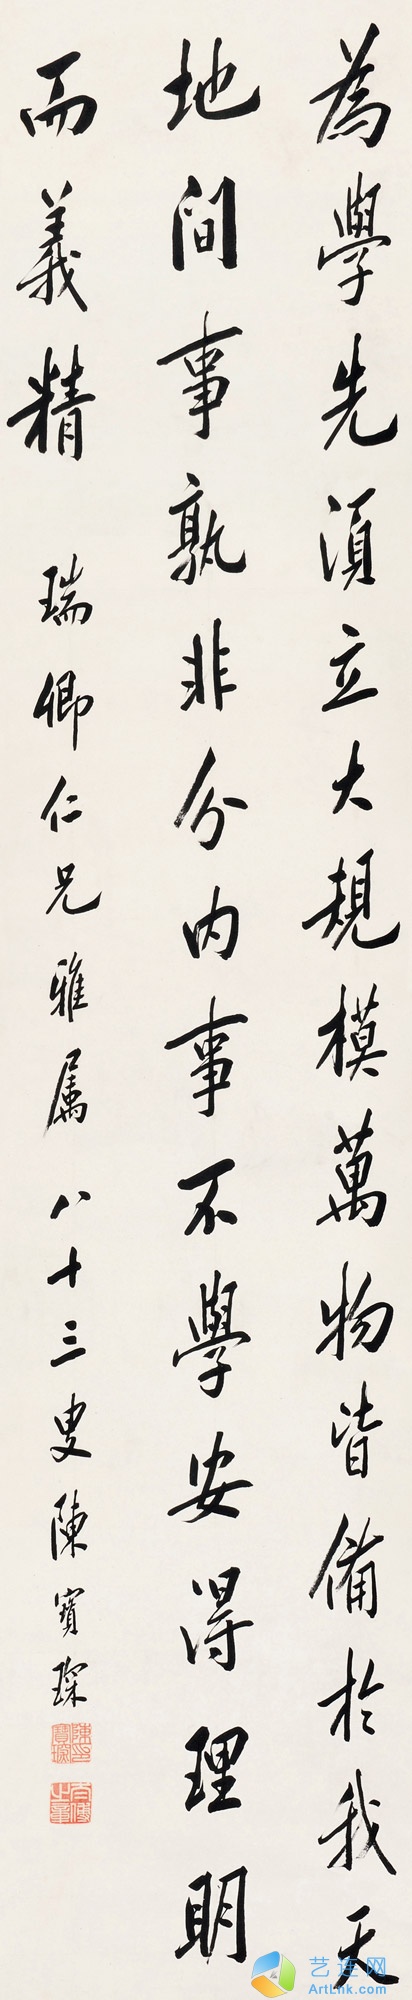 為學先須立大規模萬物皆備於我天
地間事孰非分內事不學安得理明
而義精
瑞卿仁兄雅屬 八十三叟陳寶琛
陳印寶琛
太傅之章
艺连网
ArtLink.com